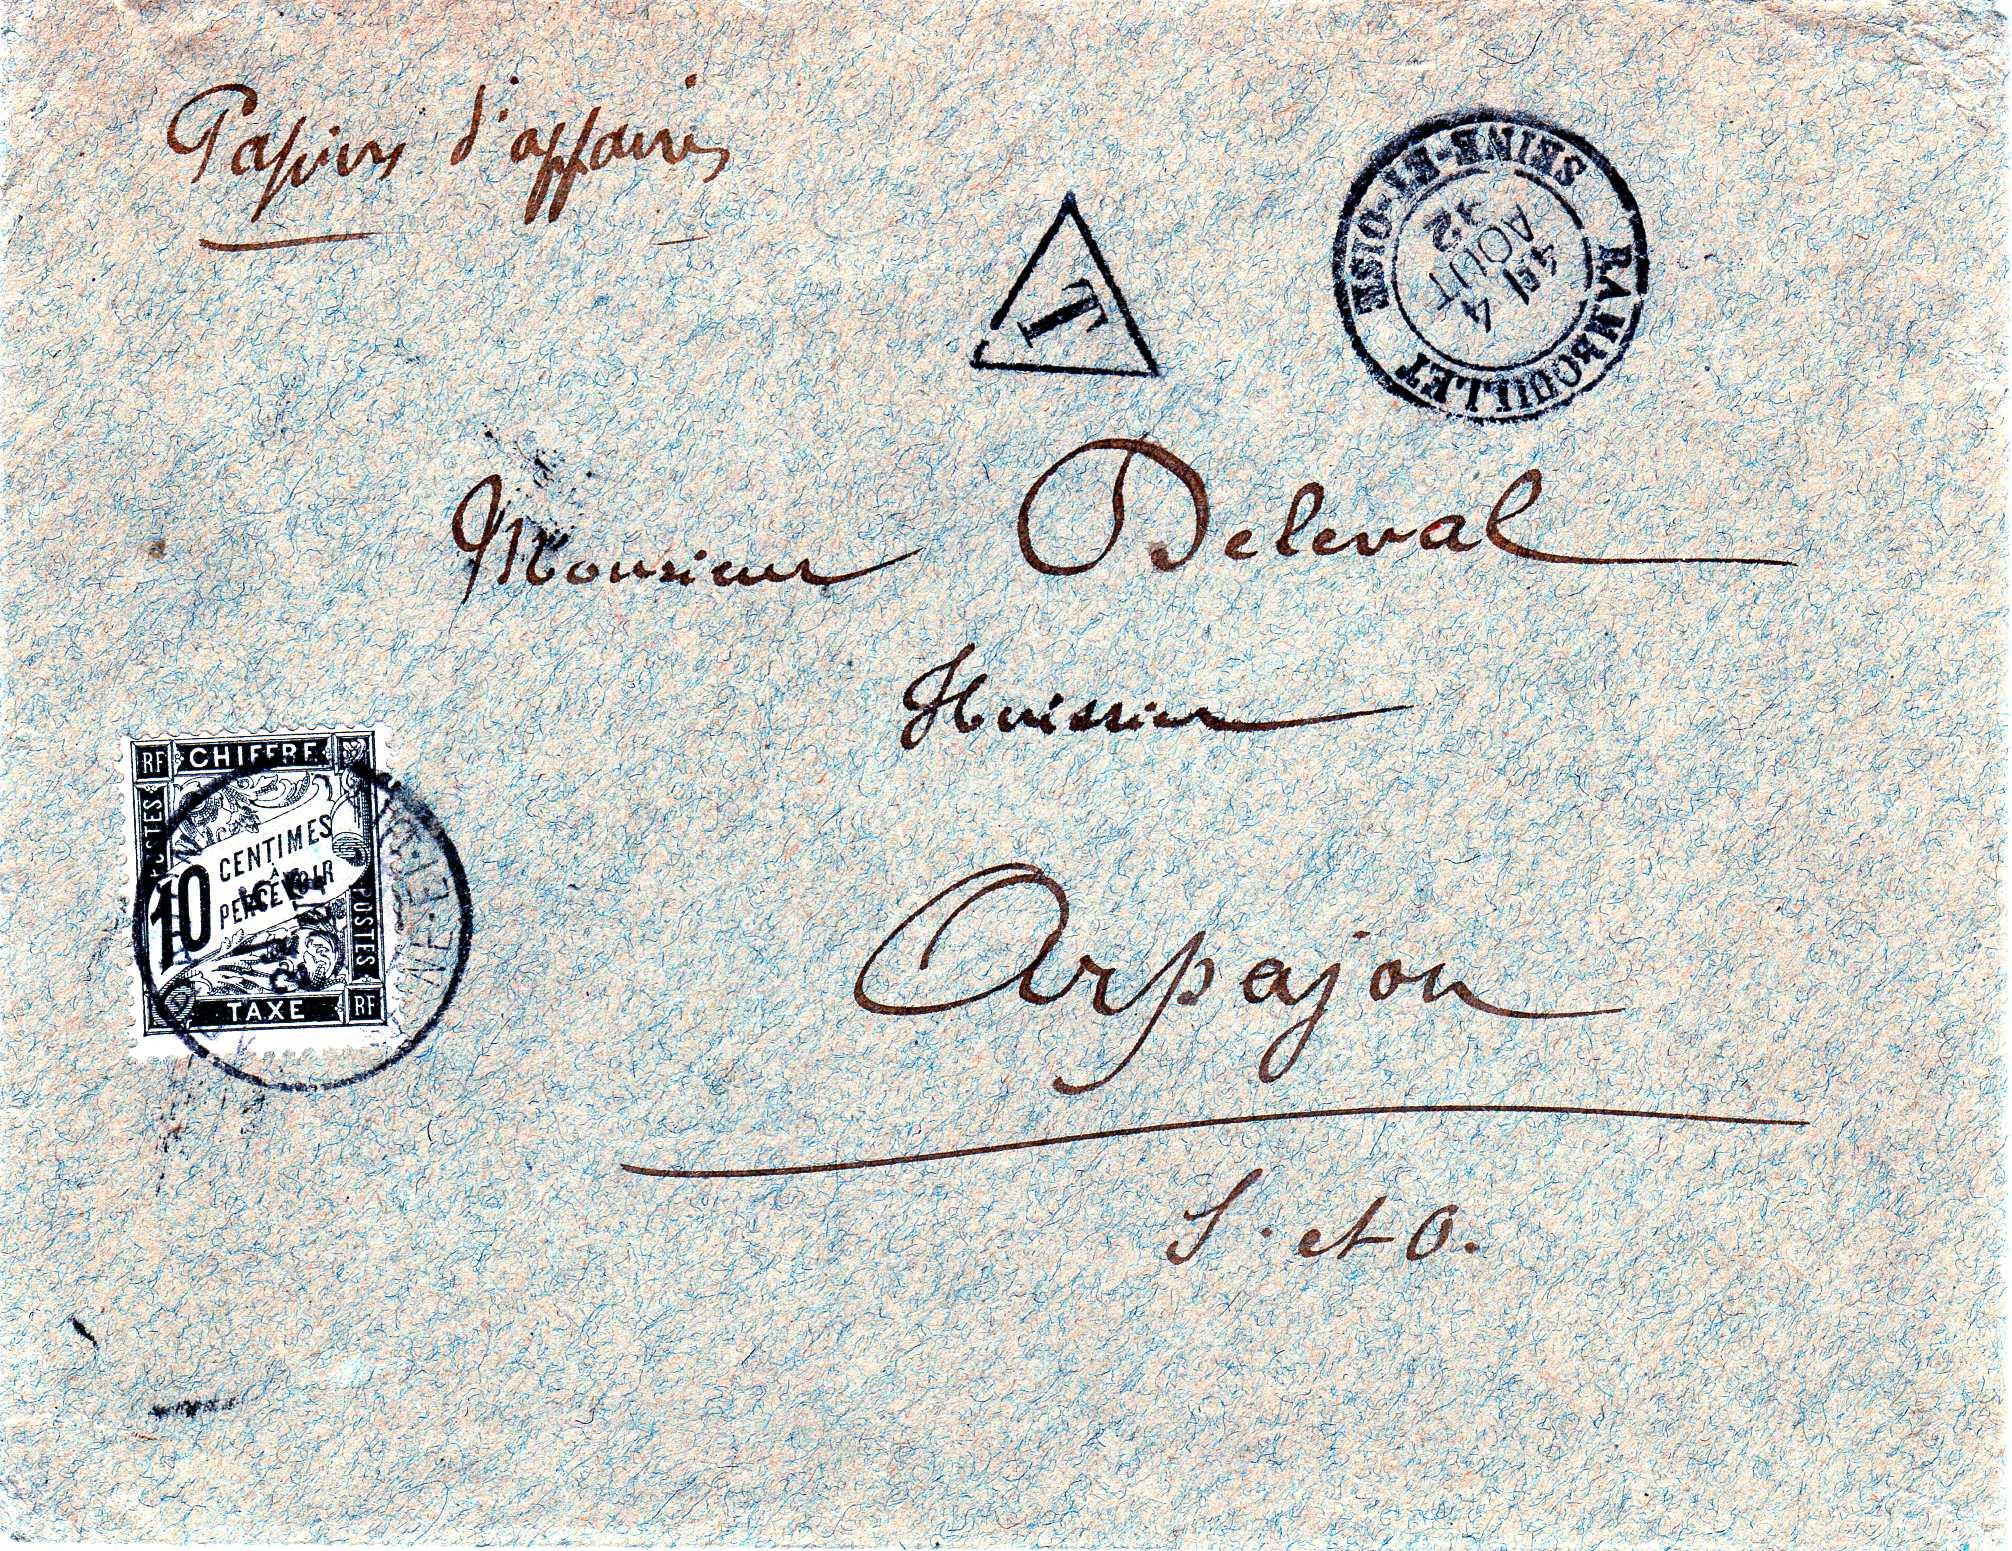 Papiers d'affaires
T
RAMBOUILLET
SEINE-ET-OISE
4
AOUT
92
Monsieur Deleval
Huissier
Arpajon
S. et O.
RF CHIFFRE
POSTES
10 CENTIMES
À
PERCEVOIR
POSTES
TAXE RF